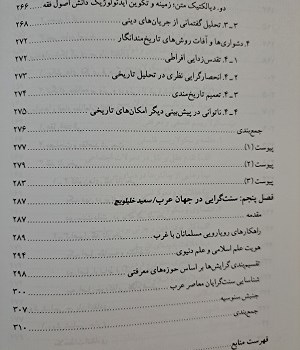 دو. دیالکتیک متن؛ زمینه و تکوین ایدئولوژیک دانش اصول فقه ۲۶۶
۳ـ۳. تحلیل گفتمانی از جریان‌های دینی ۲۶۸
۴. دشواری‌ها و آفات روش‌های تاریخ‌مندانگار ۲۷۲
۱ـ۴. تقدس‌زدایی افراطی ۲۷۲
۲ـ۴. انحصارگرایی نظری در تحلیل تاریخی ۲۷۳
۳ـ۴. تعمیم تاریخ‌مندی ۲۷۴
۴ـ۴. ناتوانی در پیش‌بینی دیگر امکان‌های تاریخی ۲۷۵
جمع‌بندی ۲۷۶
پیوست (۱) ۲۷۷
پیوست (۲) ۲۷۹
پیوست (۳) ۲۸۳
فصل پنجم: سنت‌گرایی در جهان عرب/ سعید خلیلویچ ۲۸۷
مقدمه ۲۸۷
راهکارهای رویارویی مسلمانان با غرب ۲۸۹
هویت علم اسلامی و علم دنیوی ۲۹۴
تقسیم‌بندی گرایش‌ها بر اساس حوزه‌های معرفتی ۲۹۸
شناسایی سنت‌گرایان معاصر عرب ۳۰۰
جنبش سنوسیه ۳۰۷
جمع‌بندی ۳۱۰
فهرست منابع